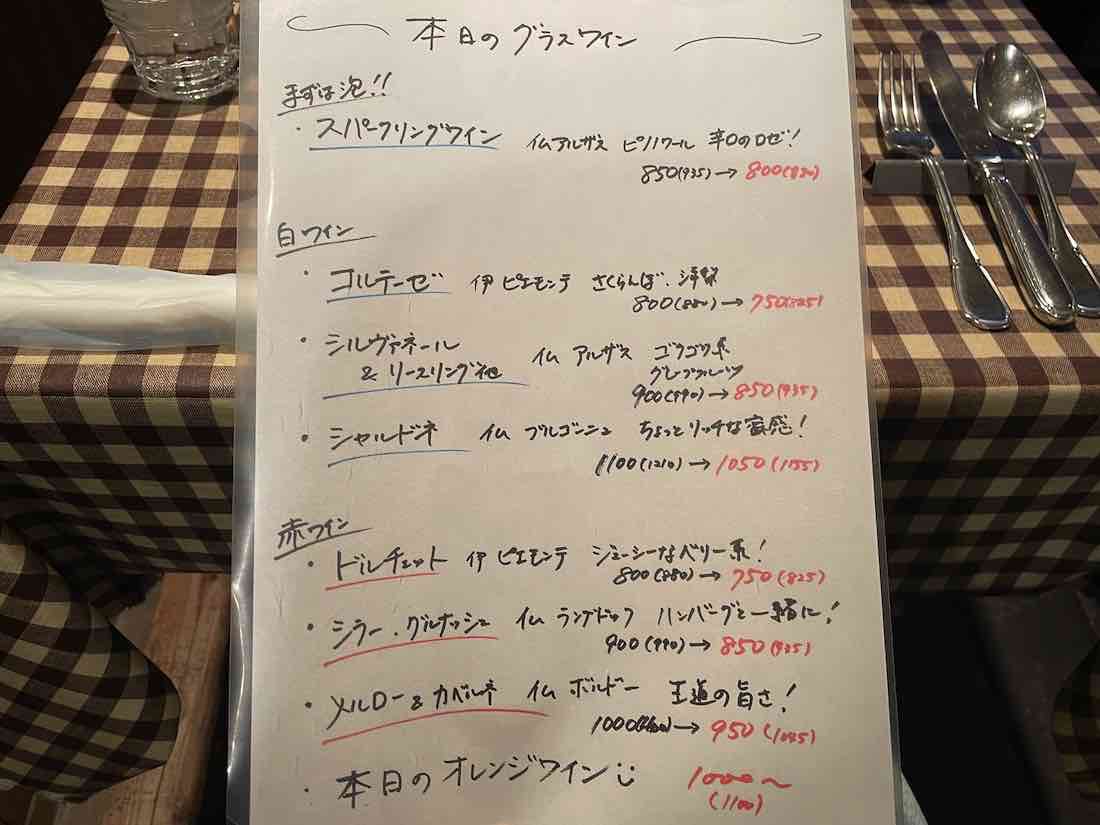 本日のグラスワイン
まずは泡!!
・スパークリングワイン 仏アルザス ピノノワール 辛口のロゼ!
850(935)→800(880)
白ワイン
・コルテーゼ 伊 ピエモンテ さくらんぼ、洋梨
800(880)→750(825)
・シルヴァネール
& リースリング他 仏 アルザス ゴクゴク系
グレープフルーツ
900(990)→850(935)
・シャルドネ 仏 ブルゴーニュ ちょっとリッチな蜜感!
1100(1210)→1050(1155)
赤ワイン
・ドルチェット 伊 ピエモンテ ジューシーなベリー系!
800(880)→750(825)
・シラー、グルナッシュ 仏 ラングドック ハンバーグと一緒に!
900(990)→850(935)
・メルロー & カベルネ 仏 ボルドー 王道の旨さ!
1000(1100)→950(1045)
・本日のオレンジワイン 1000〜
(1100)